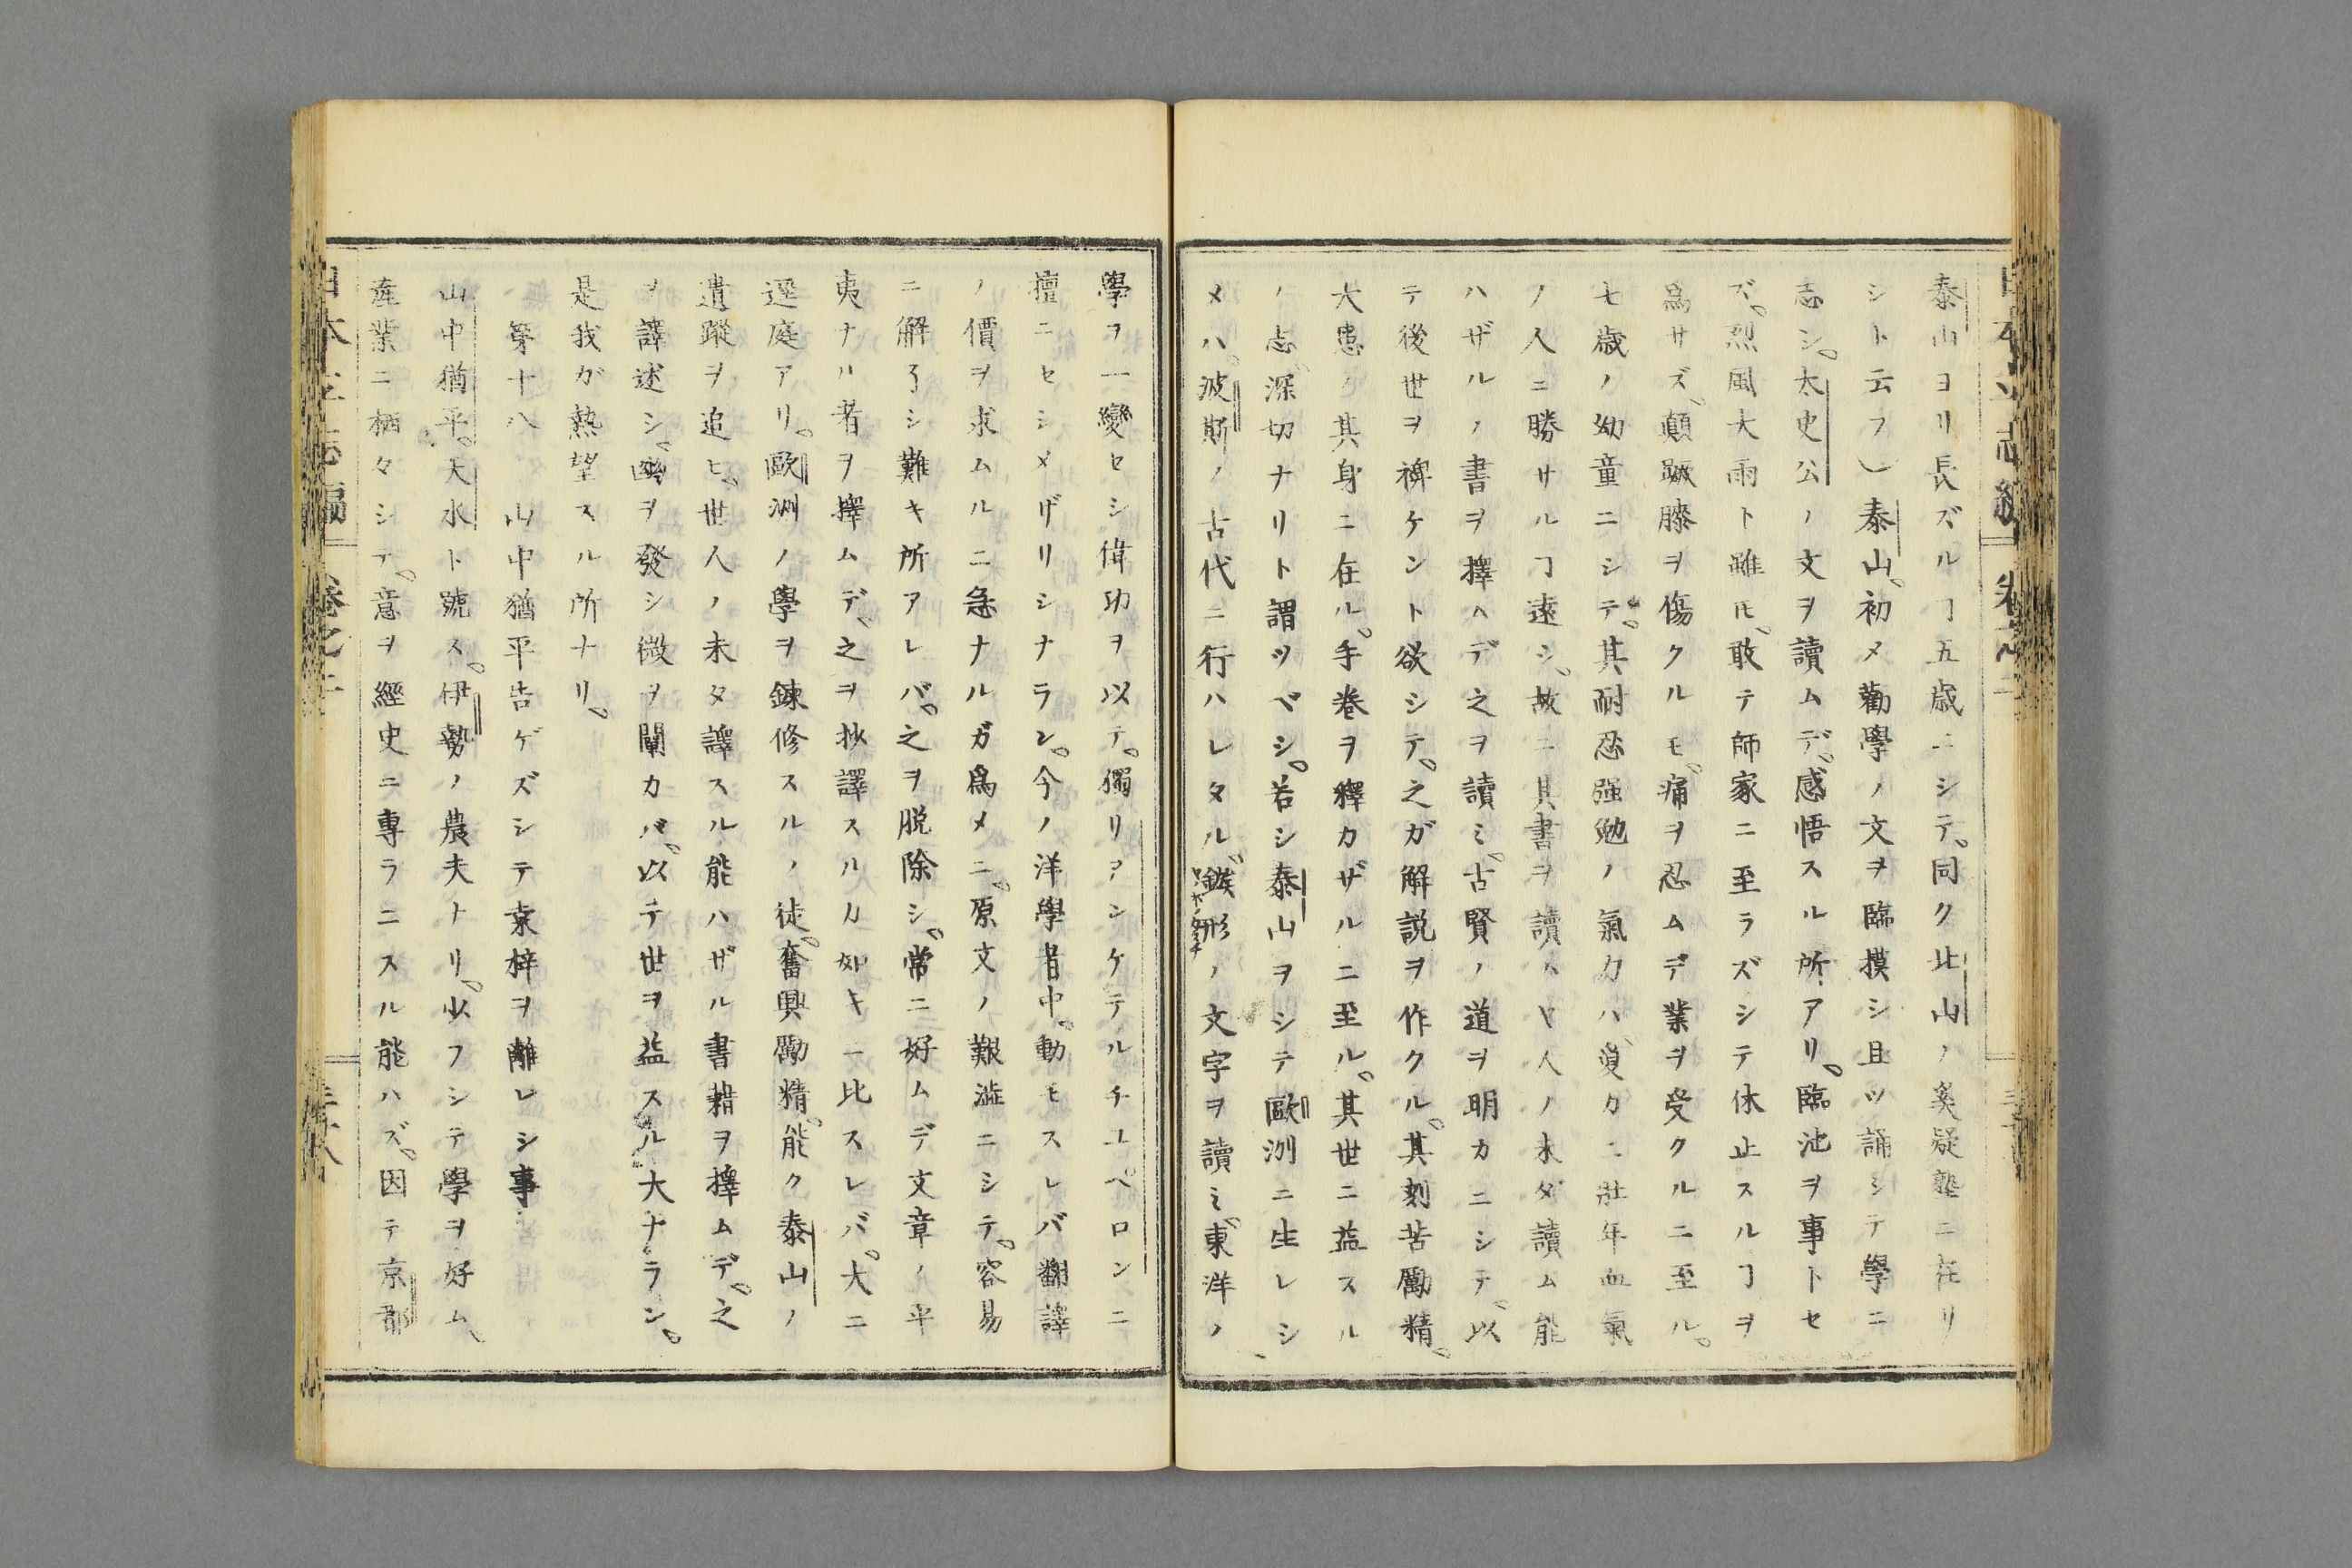 泰山ヨリ長ズルヿ五歳ニシテ。同ク北山ノ奚疑塾ニ在リ
シト云フ）泰山。初メ勸學ノ文ヲ臨摸シ且ツ誦シテ學ニ
志シ。太史公ノ文ヲ讀ムデ。感悟スル所アリ。臨池ヲ事トセ
ズ。烈風大雨ト雖𪜈。敢テ師家ニ至ラズシテ休止スルヿヲ
爲サズ。顛蹶膝ヲ傷クルモ。痛ヲ忍ムデ業ヲ受クルニ至ル。
七歳ノ幼童ニシテ。其耐忍强勉ノ氣力ハ。夐カニ壯年血氣
ノ人ニ勝サルヿ遠シ。故ニ其書ヲ讀ムヤ人ノ未ダ讀ム能
ハザルノ書ヲ擇ムデ之ヲ讀ミ。古賢ノ道ヲ明カニシテ。以
テ後世ヲ裨ケント欲シテ。之ガ解説ヲ作クル。其刻苦勵精。
大患ノ其身ニ在ル。手巻ヲ釋カザルニ至ル。其世ニ益スル
ノ志。深切ナリト謂ツベシ。若シ泰山ヲシテ歐洲ニ生レシ
メハ。波斯ノ古代ニ行ハレタル。鏃形ノ文字ヲ讀ミ。東洋ノ
學ヲ一變セシ偉功ヲ以テ。獨リヲンケテルチユペロンニ
擅ニセシメザリシナラン。今ノ洋學者中。動モスレバ飜譯
ノ價ヲ求ムルニ急ナルガ爲メニ。原文ノ艱澁ニシテ。容易
ニ解了シ難キ所アレバ。之ヲ脱除シ。常ニ好ムデ文章ノ平
夷ナル者ヲ擇ムデ。之ヲ抄譯スルカ如キニ比スレバ。大ニ
逕庭アリ。歐洲ノ學ヲ錬修スルノ徒。奮興勵精。能ク泰山ノ
遺蹤ヲ追ヒ。世人ノ未タ譯スル能ハザル書籍ヲ擇ムデ。之
ヲ譯述シ。幽ヲ發シ微ヲ闡カバ。以テ世ヲ益スル大ナラン。
是我ガ熱望スル所ナリ。
第十八　山中猶平告ゲズシテ桒梓ヲ離レシ事
山中猶平。天水ト號ス。伊勢ノ農夫ナリ。少フシテ學ヲ好ム。
産業ニ栖々シテ。意ヲ經史ニ專ラニスル能ハズ。因テ京都
日本立志編　卷之二　三十八